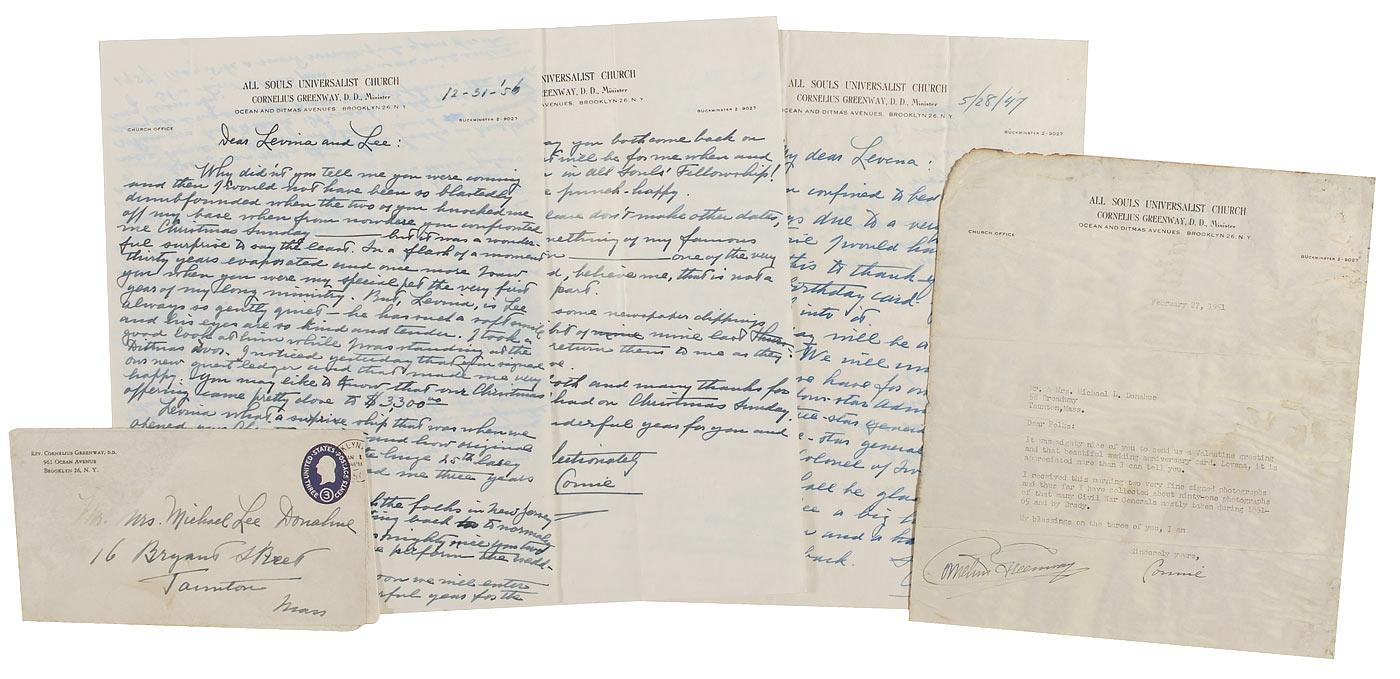 ALL SOULS UNIVERSALIST CHURCH
CORNELIUS GREENWAY, D. D., Minister
OCEAN AND DITMAS AVENUES BROOKLYN 26, N. Y.
12-31-'56
CHURCH OFFICE
BUCKMINSTER 2-9027
Dear Levina and Lee:
Why didn't you tell me you were coming
and then I would not have been so blastedly
dumbfounded when the two of you knocked me
off my base when from nowhere you confronted
me Christmas Sunday but it was a wonder-
ful surprise to say the least. In a flash of a moment
thirty years evaporated and once more I saw
you when you were my special pet the very first
year of my long ministry. But, Levina, is Lee
always so gently quiet - he has such a soft smile
and his eyes are so kind and tender. I took a
good look at him while I was standing at the
Ditmas door. I noticed yesterday that you signed
our new guest ledger and that made me very
happy. You may like to know that our Christmas
offering came pretty close to $3,300.00
Levina what a surprise ship that was when we
opened
and how original
huge 25th
and me three years
the folks in New Jersey
back to normalcy
mighty nice you two
perform the wedd-
soon we will enter
year for the
NIVERSALIST CHURCH
EENWAY, D. D., Minister
AVENUES BROOKLYN 26, N. Y.
BUCKMINSTER 2-9027
you both come back on
will be for me when and
in All Souls' Fellowship!
punch-happy.
don't make other dates,
nething of my famous
one of the very
d, believe me, that is not a
part.
some newspaper clippings
of mine mine last
return them to me as they
oth and many thanks for
had on Christmas Sunday.
nderful year for you and
ectionately
Connie
ALL SOULS UNIVERSALIST CHURCH
CORNELIUS GREENWAY, D. D., Minister
OCEAN AND DITMAS AVENUES BROOKLYN 26, N. Y.
5/28/47
BUCKMINSTER 2-9027
y dear Levena:
confined to bed
ys due to a very
I would ha
this to thank
birthday card!
into it
will be a
We will m
have for on
four-star Adm
-star general
-star general
colonel of
all be glad
a big
and a
back.
ALL SOULS UNIVERSALIST CHURCH
CORNELIUS GREENWAY, D. D., Minister
OCEAN AND DITMAS AVENUES BROOKLYN 26, N. Y.
CHURCH OFFICE
BUCKMINSTER 2-9027
February 27, 1951
Mr. & Mrs. Michael L. Donahue
56 Broadway
Taunton, Mass.
Dear Folks:
It was mighty nice of you to send us a Valentine greeting
and that beautiful wedding anniversary card. Levena, it is
appreciated more than I can tell you.
I received this morning two very fine signed photographs
and thus far I have collected about ninety-one photographs
of that many Civil War Generals mostly taken during 1861-
65 and by Brady.
My blessings on the three of you, I am
Sincerely yours,
Connie
Cornelius Greenway
REV. CORNELIUS GREENWAY, D.D.
961 OCEAN AVENUE
BROOKLYN 26, N. Y.
UNITED STATES POSTAGE
3
THREE CENTS
Mr. Mrs. Michael Lee Donahue
16 Bryant Street
Taunton
Mass